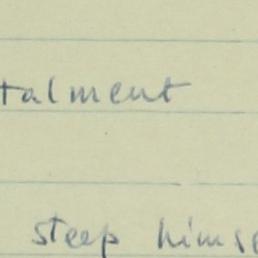 talment
steep himse